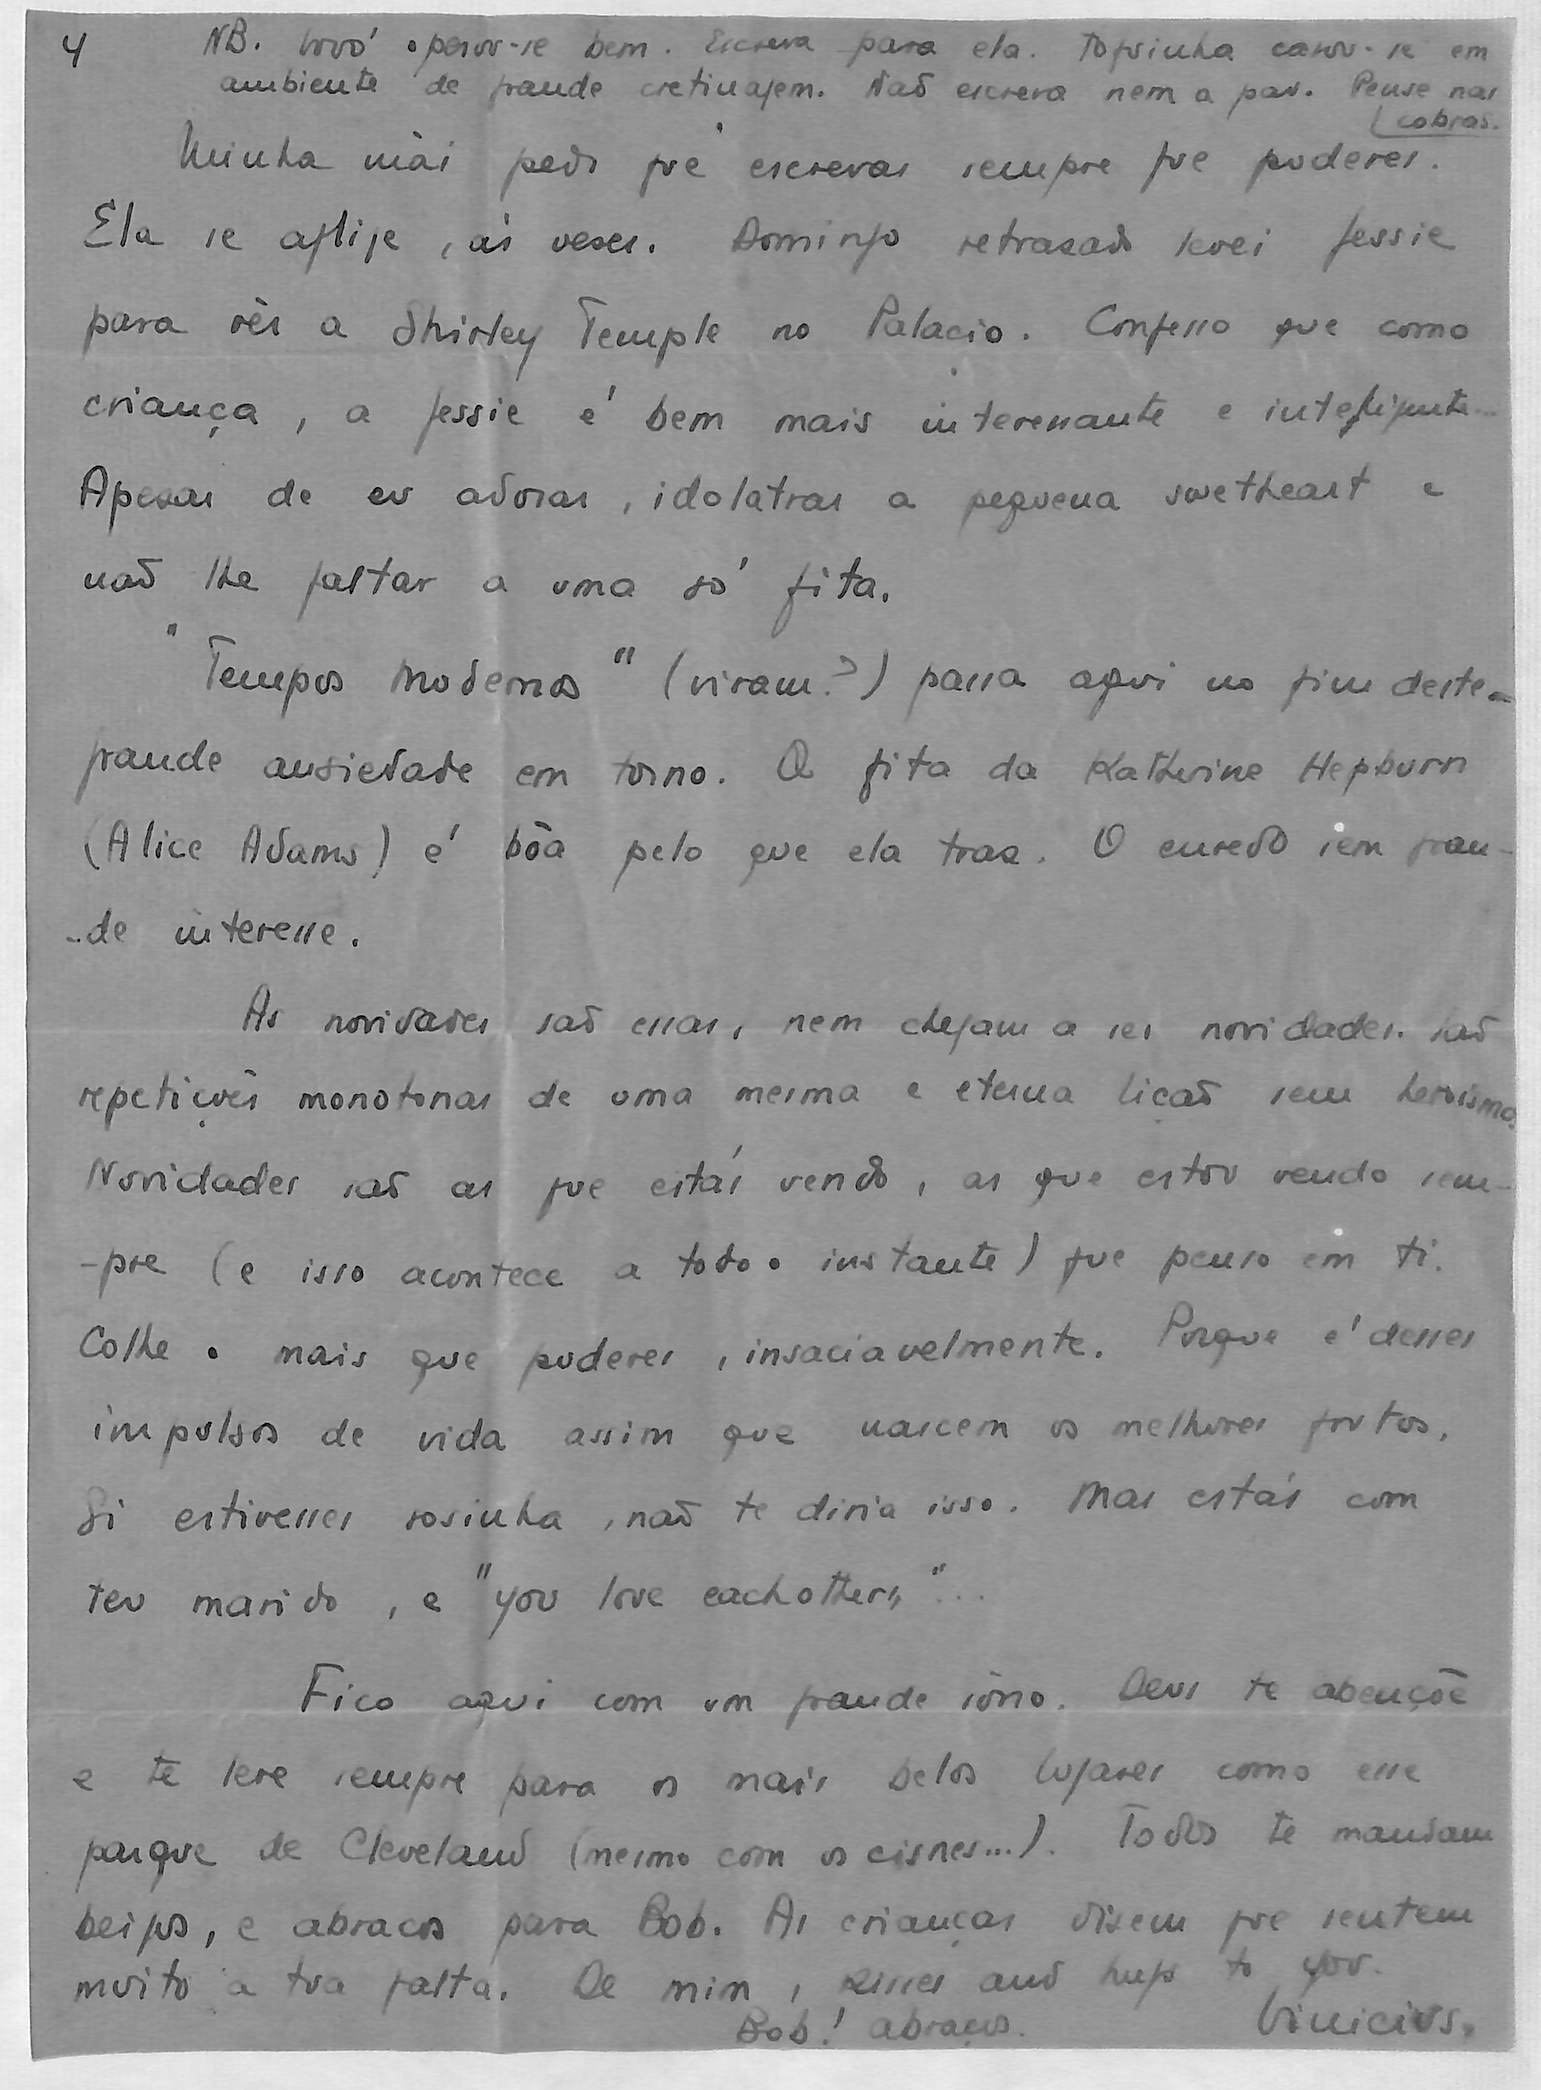 4 NB. Vovó operou-se bem. Escreva para ela. Toquinha casou-se em
ambiente de grande cretinagem. Naõ escreva nem a pau. Pense nas
cobras.
Minha mãi pediu que escrevas sempre que puderes.
Ela se aflige, ás vezes. Domingo retrazado levei Jessie
para vêr a Shirley Temple no Palacio. Confesso que como
criança, a Jessie é bem mais interessante e inteligente...
Apezar de eu adorar, idolatrar a pequena swetheart e
naõ lhe faltar a uma só fita.
"Tempos Modernos" (viram?) passa aqui no fim deste —
grande ansiedade em torno. A fita da Katherine Hepburn
(Alice Adams) é bôa pelo que ela traz. O enredo sem gran-
-de interesse.
As novidades saõ essas, nem chegam a ser novidades. Saõ
repetições monotonas de uma mesma e eterna liçaõ sem heroismo.
Novidades saõ as que estás vendo, as que estou vendo sem-
-pre (e isso acontece a todo o instante) que penso em ti.
Colhe o mais que puderes, insaciavelmente. Porque é desses
impulsos de vida assim que nascem os melhores frutos.
Si estivesses sosinha, naõ te diria isso. Mas estás com
teu marido, e "you love eachothers"...
Fico aqui com um grande sôno. Deus te abençõe
e te leve sempre para os mais belos lugares como esse
parque de Cleveland (mesmo com os cisnes...). Todos te mandam
beijos, e abraços para Bob. As crianças disem que sentem
muito a tua falta. De mim, kisses and hugs to you.
Bob! abraços. Vinicius.